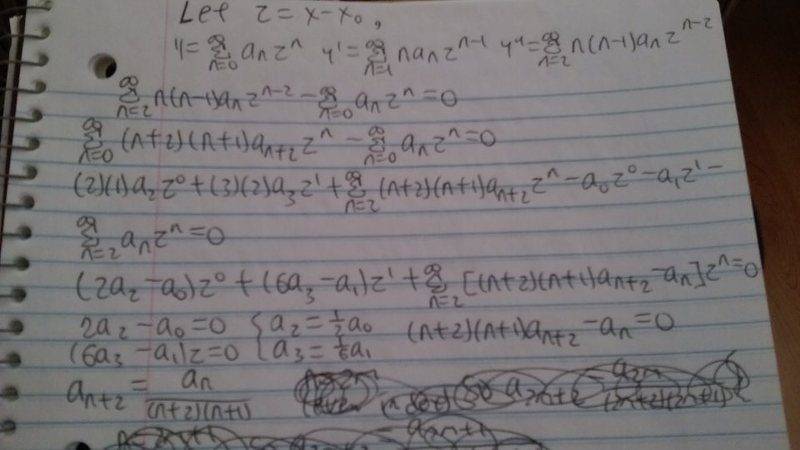 Let z = x-x₀,
y = ∞Σn=0 aₙ zⁿ y' = ∞Σn=1 naₙ zⁿ⁻¹ y'' = ∞Σn=2 n(n-1)aₙ zⁿ⁻²
∞Σn=2 n(n-1)aₙ zⁿ⁻² - ∞Σn=0 aₙ zⁿ = 0
∞Σn=0 (n+2)(n+1)aₙ₊₂ zⁿ - ∞Σn=0 aₙ zⁿ = 0
(2)(1)a₂ z⁰ + (3)(2)a₃ z¹ + ∞Σn=2 (n+2)(n+1)aₙ₊₂ zⁿ - a₀z⁰ - a₁z¹ -
∞Σn=2 aₙ zⁿ = 0
(2a₂ - a₀)z⁰ + (6a₃ - a₁)z¹ + ∞Σn=2 [(n+2)(n+1)aₙ₊₂ - aₙ]zⁿ = 0
2a₂ - a₀ = 0 { a₂ = 1/2 a₀ (n+2)(n+1)aₙ₊₂ - aₙ = 0
(6a₃ - a₁)z = 0 { a₃ = 1/6 a₁
aₙ₊₂ = aₙ/(n+2)(n+1)